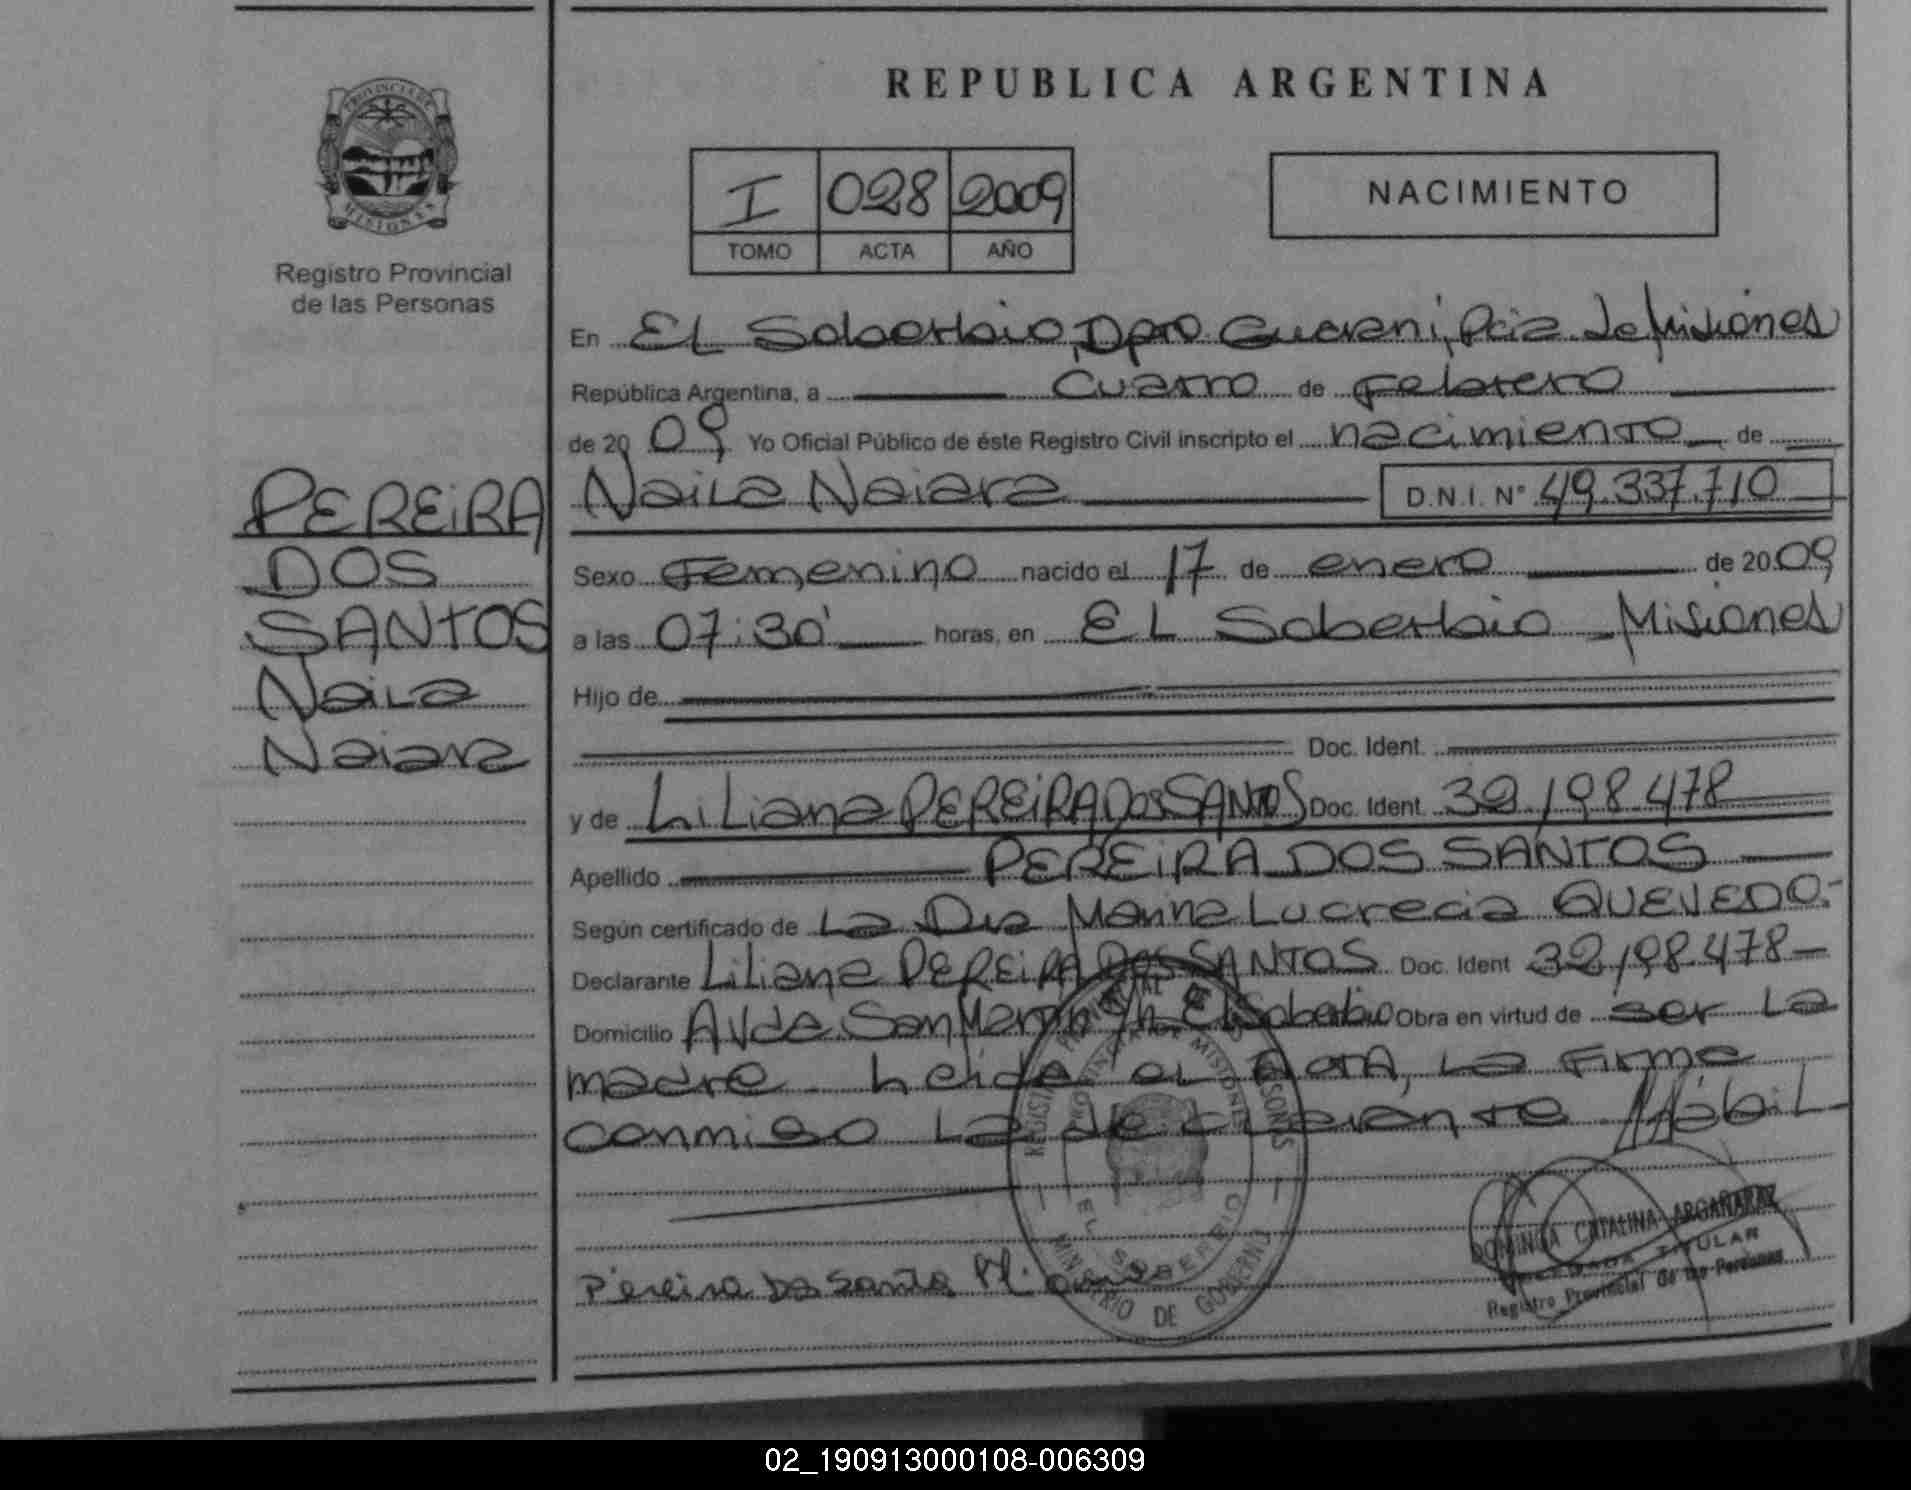 REPUBLICA ARGENTINA
PROVINCIA DE
MISIONES
Registro Provincial
de las Personas
I 028 2009
TOMO ACTA AÑO
NACIMIENTO
En EL Soberbio, Dpto Guarani, Pcia. de Misiones
República Argentina, a Cuatro de Febrero
de 2009 Yo Oficial Público de éste Registro Civil inscripto el nacimiento de
PEREIRA
DOS
SANTOS
Naila
Naiara
Naila Naiara D.N.I. N° 49.337.710
Sexo Femenino nacido el 17 de enero de 2009
a las 07:30' horas, en EL Soberbio - Misiones
Hijo de
Doc. Ident.
y de Liliana PEREIRA DOS SANTOS Doc. Ident. 32198478
Apellido PEREIRA DOS SANTOS
Según certificado de La Dra Marina Lucrecia QUEVEDO.-
Declarante Liliana PEREIRA DOS SANTOS Doc. Ident 32198478-
Domicilio Avda. San Martin S/n El Soberbio Obra en virtud de ser La
madre. Leida el ActA, La Firma
conmigo La declarante Hábil
REGISTRO PROVINCIAL DE LAS PERSONAS
PROVINCIA DE MISIONES
EL SOBERBIO
MINISTERIO DE GOBIERNO
Pereira Dos Santos
DOMINGA CATALINA ARGAÑARAZ
DELEGADA TITULAR
Registro Provincial de las Personas
02_190913000108-006309